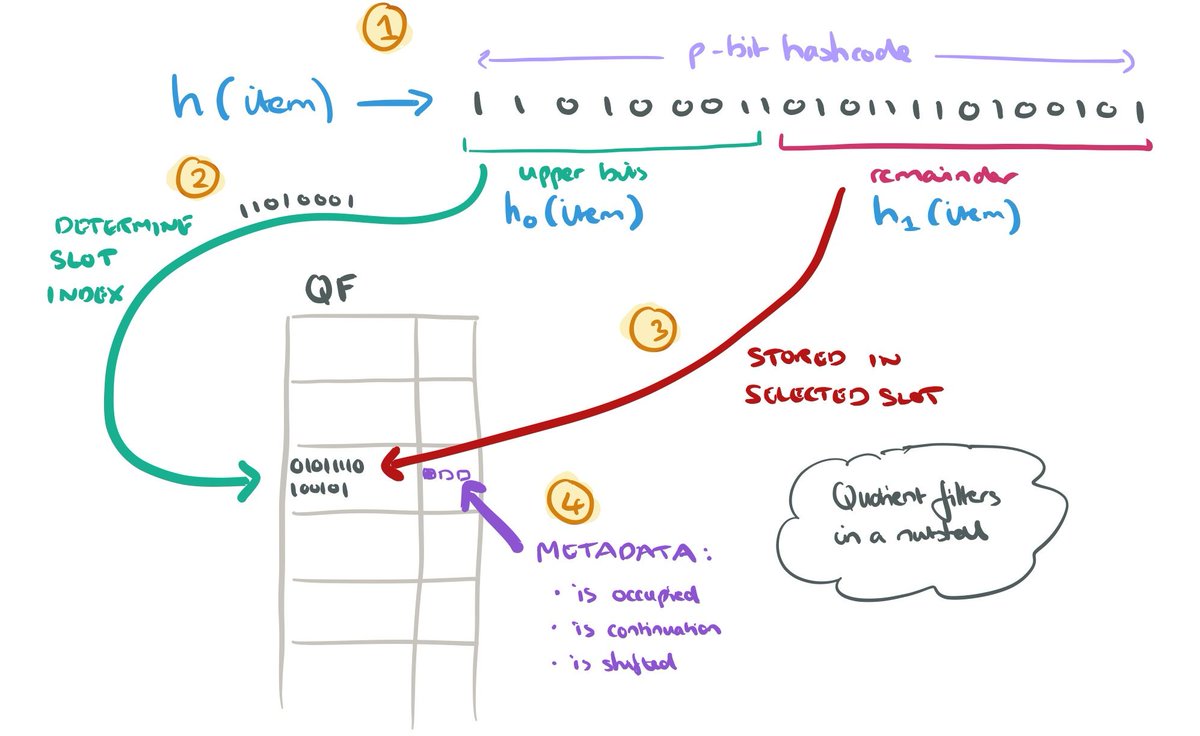 1
p-bit hashcode
h(item) → 1 1 0 1 0 0 0 1 1 0 1 0 1 1 1 1 0 1 0 0 1 0 1
upper bits
h₀(item)
remainder
h₁(item)
2
11010001
DETERMINE
SLOT
INDEX
QF
3
STORED IN
SELECTED SLOT
01011110
100101
4
METADATA:
· is occupied
· is continuation
· is shifted
Quotient filters
in a nutshell